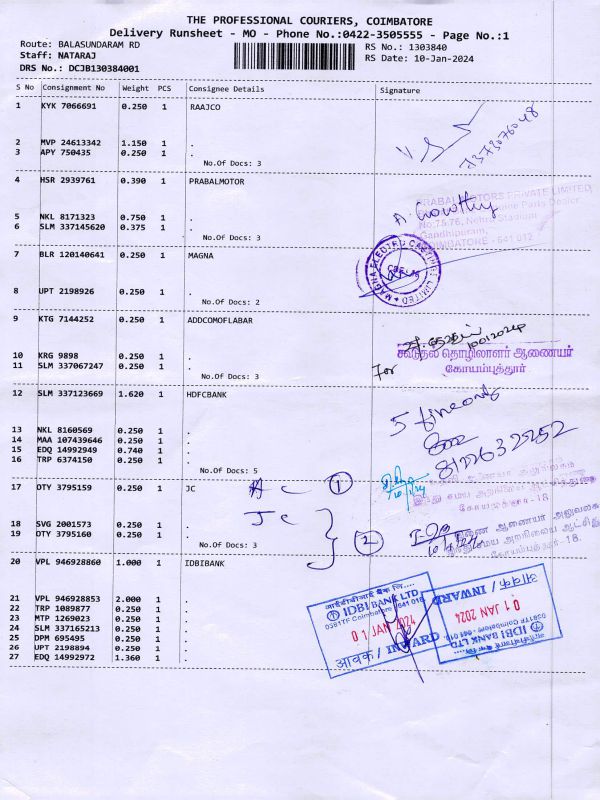 THE PROFESSIONAL COURIERS, COIMBATORE
Delivery Runsheet - MO - Phone No.:0422-3505555 - Page No.:1
Route: BALASUNDARAM RD
RS No.: 1303840
Staff: NATARAJ
RS Date: 10-Jan-2024
DRS No.: DCJB130384001
S No Consignment No Weight PCS Consignee Details Signature
1 KYK 7066691 0.250 1 RAAJCO
7373076048
2 MVP 24613342 1.150 1 .
3 APY 750435 0.250 1 .
No.Of Docs: 3
4 HSR 2939761 0.390 1 PRABALMOTOR
PRABALMOTORS PRIVATE LIMITED,
Parts Dealer
No.75,76, Nehru Stadium
Gandhipuram,
COIMBATORE - 641 012
A. Chowthy
5 NKL 8171323 0.750 1 .
6 SLM 337145620 0.375 1 .
No.Of Docs: 3
7 BLR 120140641 0.250 1 MAGNA
MAGNA ELECTRO CASTINGS LIMITED
8 UPT 2198926 0.250 1 .
No.Of Docs: 2
9 KTG 7144252 0.250 1 ADDCOMOFLABAR
For
கூடுதல் தொழிலாளர் ஆணையர்
கோயம்புத்தூர்
10 KRG 9898 0.250 1 .
11 SLM 337067247 0.250 1 .
No.Of Docs: 3
12 SLM 337123669 1.620 1 HDFCBANK
8122632252
13 NKL 8160569 0.250 1 .
14 MAA 107439646 0.250 1 .
15 EDQ 14992949 0.740 1 .
16 TRP 6374150 0.250 1 .
No.Of Docs: 5
17 OTY 3795159 0.250 1 JC
1
கோயமுத்தூர்-18
JC
2
18 SVG 2001573 0.250 1 .
19 OTY 3795160 0.250 1 .
No.Of Docs: 3
இணை ஆணையர் அலுவலகம்
கோயம்புத்தூர்-18.
20 VPL 946928860 1.000 1 IDBIBANK
21 VPL 946928853 2.000 1 .
22 TRP 1089877 0.250 1 .
23 MTP 1269023 0.250 1 .
24 SLM 337165213 0.250 1 .
25 DPM 695495 0.250 1 .
26 UPT 2198894 0.250 1 .
27 EDQ 14992972 1.360 1 .
आईडीबीआई बैंक लि....
IDBI BANK LTD
0381TF Coimbatore - 641 018
01 JAN 2024
आवक / INWARD
आईडीबीआई बैंक लि....
IDBI BANK LTD
0381TF Coimbatore - 641 018
01 JAN 2024
आवक / INWARD